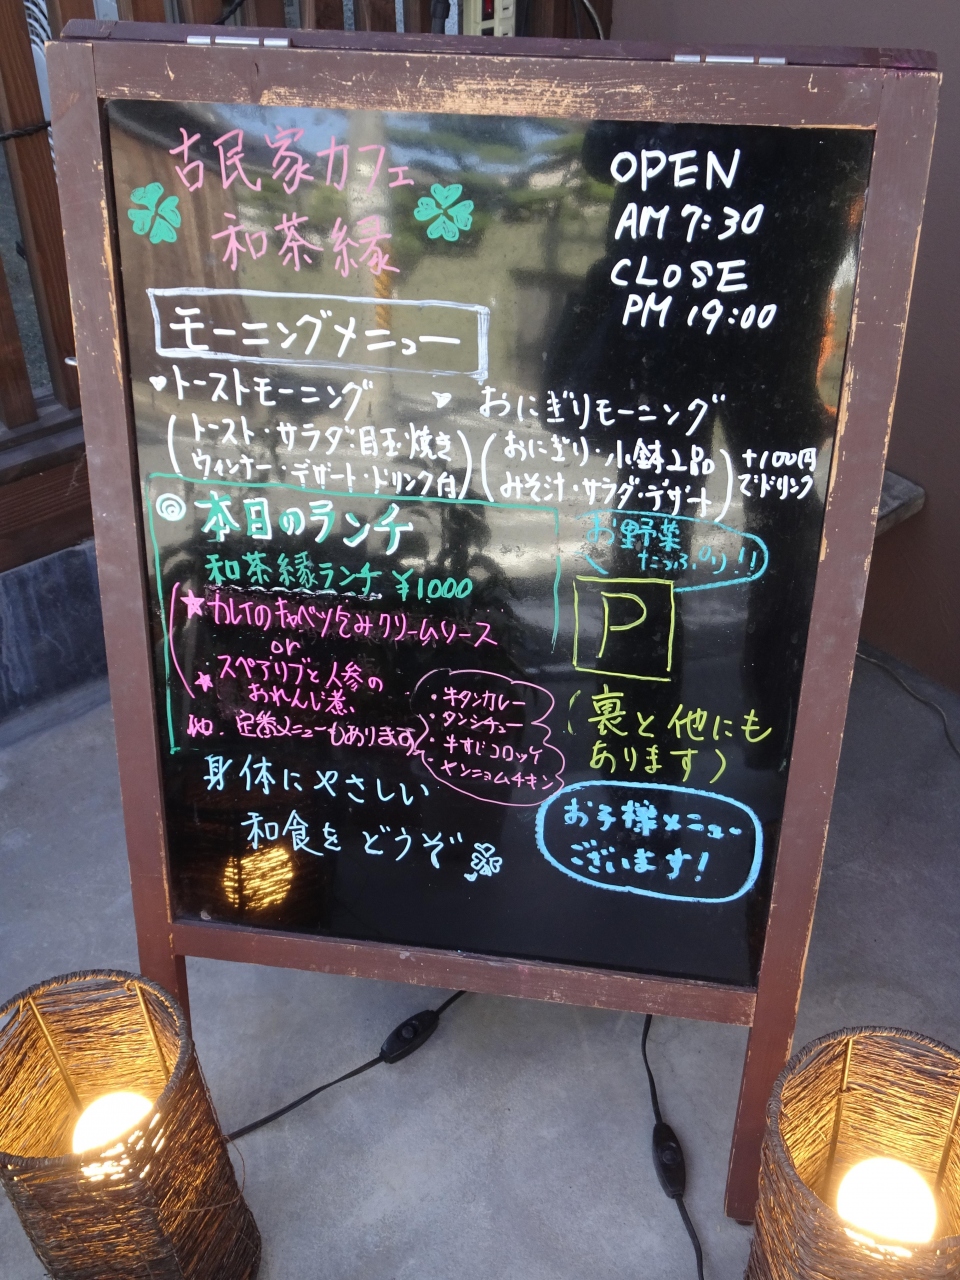 古民家カフェ
和茶縁
OPEN
AM 7:30
CLOSE
PM 19:00
モーニングメニュー
♥トーストモーニング
(トースト・サラダ目玉焼き
ウィンナー・デザート・ドリンク付)
♥ おにぎりモーニング
(おにぎり・小鉢2品
みそ汁・サラダ・デザート)
+100円
でドリンク
◎本日のランチ
和茶縁ランチ ¥1000
★カレイのキャベツ包みクリームソース
or
★スペアリブと人参の
おれんじ煮
他、定番メニューもあります
・牛タンカレー
・タンシチュー
・牛すじコロッケ
・ヤンニョムチキン
お野菜
たっぷり!!
P
(裏と他にも
あります)
身体にやさしい
和食をどうぞ
お子様メニュー
ございます!